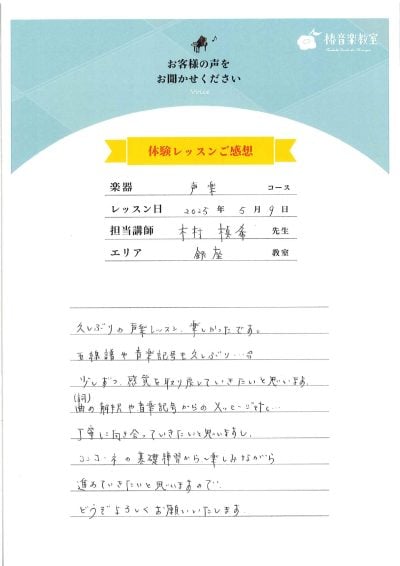 椿音楽教室
お客様の声を
お聞かせください
Voice
体験レッスンご感想
楽器 声楽 コース
レッスン日 2025年5月9日
担当講師 木村 先生
エリア 銀座 教室
久しぶりの声楽レッスン、楽しかったです。
五線譜や音楽記号も久しぶり…
少しずつ、感覚を取り戻していきたいと思います。
(詞)
曲の解釈や音楽記号からのメッセージなど…
丁寧に向き合っていきたいと思いますし、
コンコーネの基礎練習から、楽しみながら
進めていきたいと思いますので、
どうぞよろしくお願いいたします。